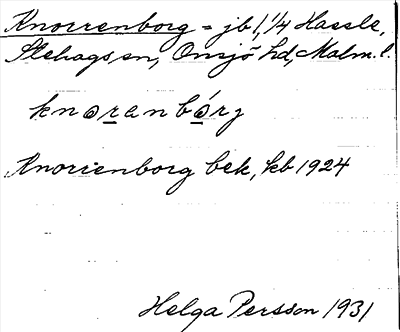 Knorrenborg = jb 1, 1/4 Hassle,
Stehags sn, Onsjö hd, Malm. l.
knɷrenbórg
Knorrenborg bek, kb 1924
Helga Persson 1931